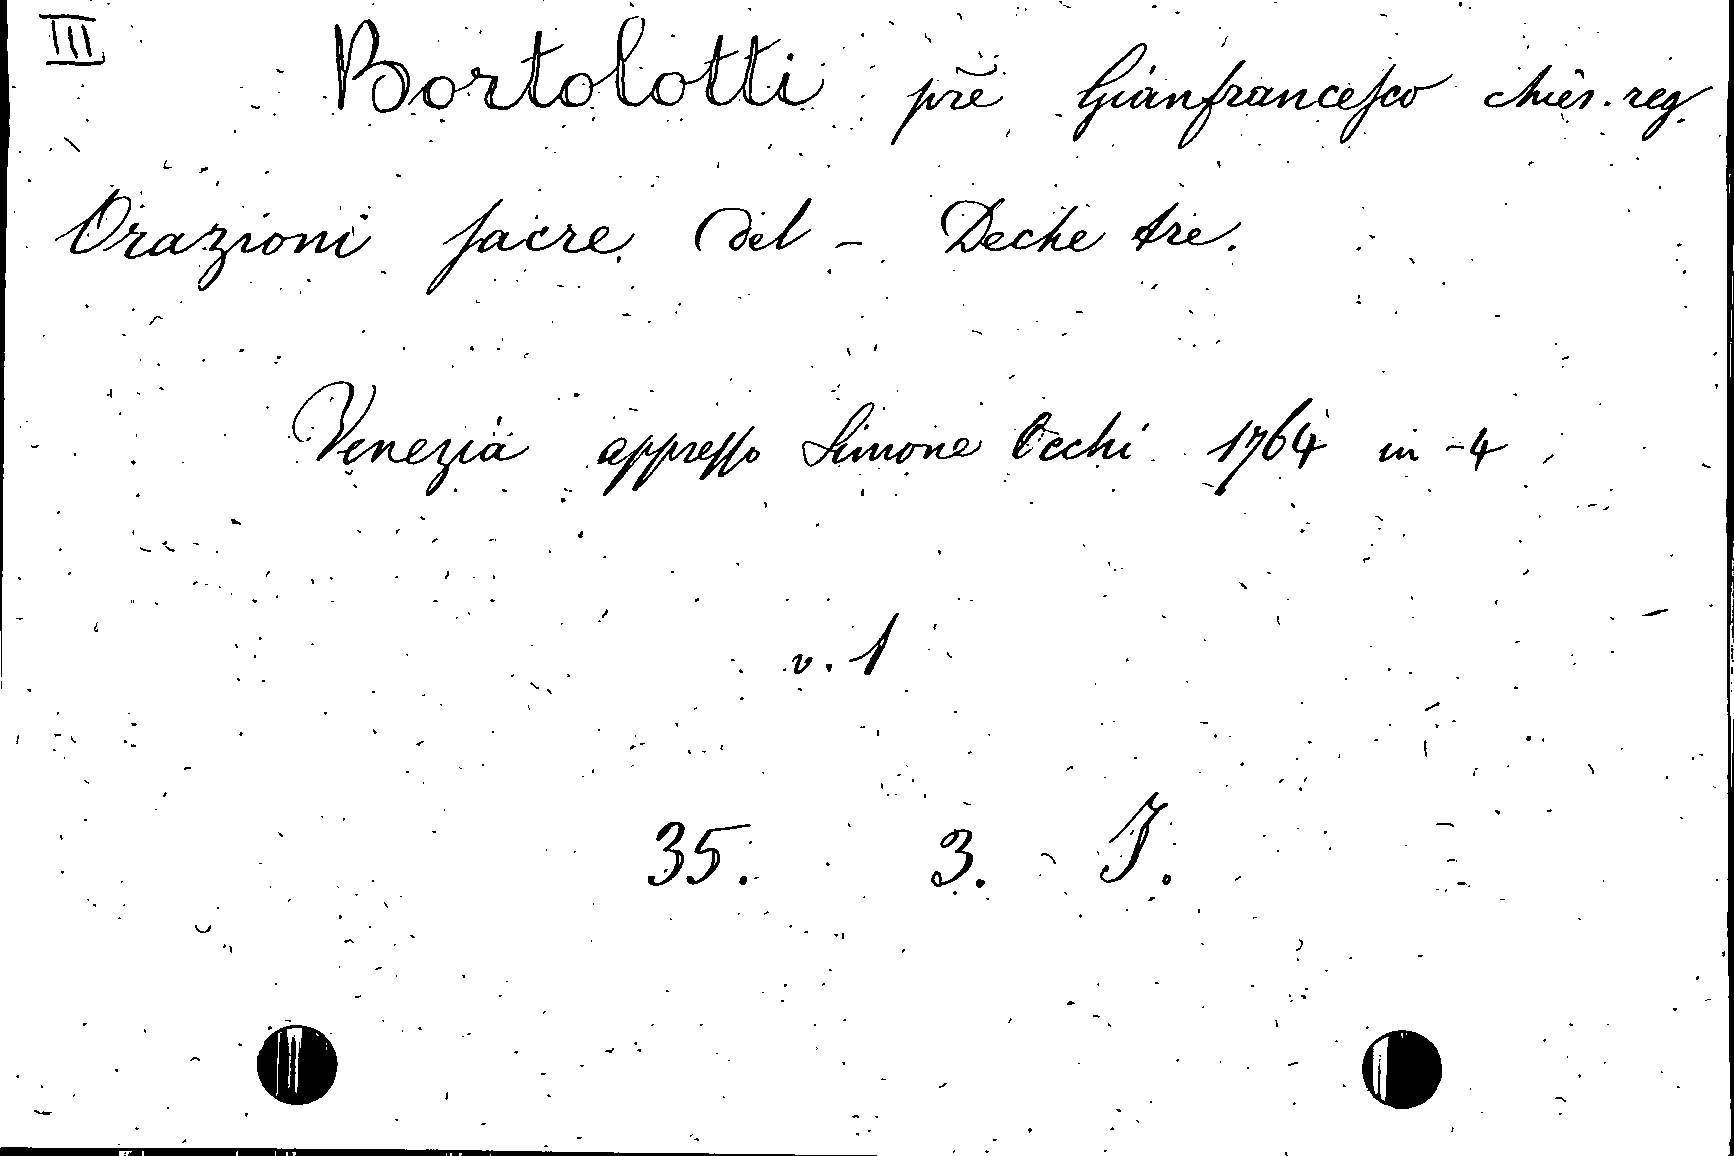 III
Bortolotti prẽ Gianfrancesco chier. reg.
Orazioni sacre del - Deche tre.
Venezia appresso Simone Occhi 1764 in -4
v. 1
35. 3. J.